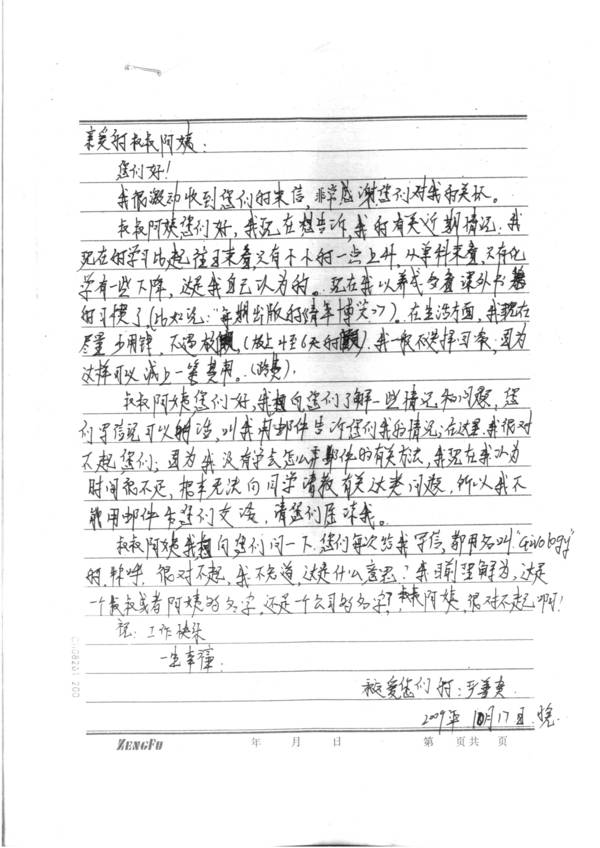 亲爱的叔叔阿姨：
您们好！
我很激动收到您们的来信，非常感谢您们对我的关怀。
叔叔阿姨您们好，我现在想告诉，我的有关近期情况：我
现在的学习比起往日来看，只有不小的一些上升，从单科来看，只有化
学有一些下降，这是我自己认为的。现在我以养成多看课外书
的习惯了（比如说：“每期出版的《青年博览》）。在生活方面，我现在
尽量少用钱，不过放假，（放上4至6天的假），我一般不选择回家，因为
这样可以减上一笔费用。（路费）。
叔叔阿姨您们好，我想向您们了解一些情况和问题，您
们写信说可以的话，叫我用邮件告诉您们我的情况；在这里，我很对
不起您们；因为我没有学会怎么弄邮件的有关方法，我现在我认为
时间很不足，根本无法向同学请教有关这类问题，所以我不
能用邮件与您们交流，请您们原谅我。
叔叔阿姨我想向您们问一下，您们每次给我写信，都用名叫“Givology”
的称呼，很对不起，我不知道，这是什么意思？我目前理解为，这是
一个叔叔或者阿姨的名字，还是一个公司的名字？，叔叔阿姨，很对不起啊！
祝：工作快乐
一生幸福！
爱您们的：
2009年 10月17日.晚
ZENGFU 年 月 日 第 页共 页